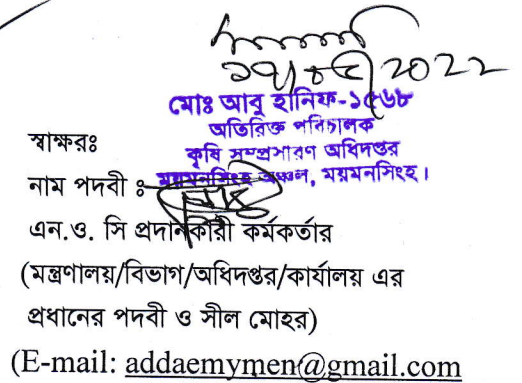 2022
মোঃ আবু হানিফ-১৫৬৮
অতিরিক্ত পরিচালক
কৃষি সম্প্রসারণ অধিদপ্তর
ময়মনসিংহ অঞ্চল, ময়মনসিংহ।
স্বাক্ষরঃ
নাম পদবী ঃ
এন.ও. সি প্রদানকারী কর্মকর্তার
(মন্ত্রণালয়/বিভাগ/অধিদপ্তর/কার্যালয় এর
প্রধানের পদবী ও সীল মোহর)
(E-mail: addaemymen@gmail.com